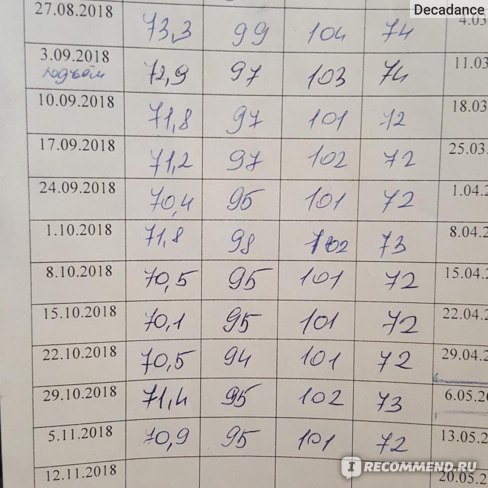 Decadance
27.08.2018 73,3 99 104 74 4.03
3.09.2018 72,9 97 103 74 11.03
подъём
10.09.2018 71,8 97 101 72 18.03
17.09.2018 71,2 97 102 72 25.03
24.09.2018 70,4 95 101 72 1.04.2
1.10.2018 71,8 98 102 73 8.04.2
8.10.2018 70,5 95 101 72 15.04.
15.10.2018 70,1 95 101 72 22.04.2
22.10.2018 70,5 94 101 72 29.04.2
29.10.2018 71,4 95 102 73 6.05.20
5.11.2018 70,9 95 101 72 13.05.2
12.11.2018 20.05.2
IRECOMMEND.RU